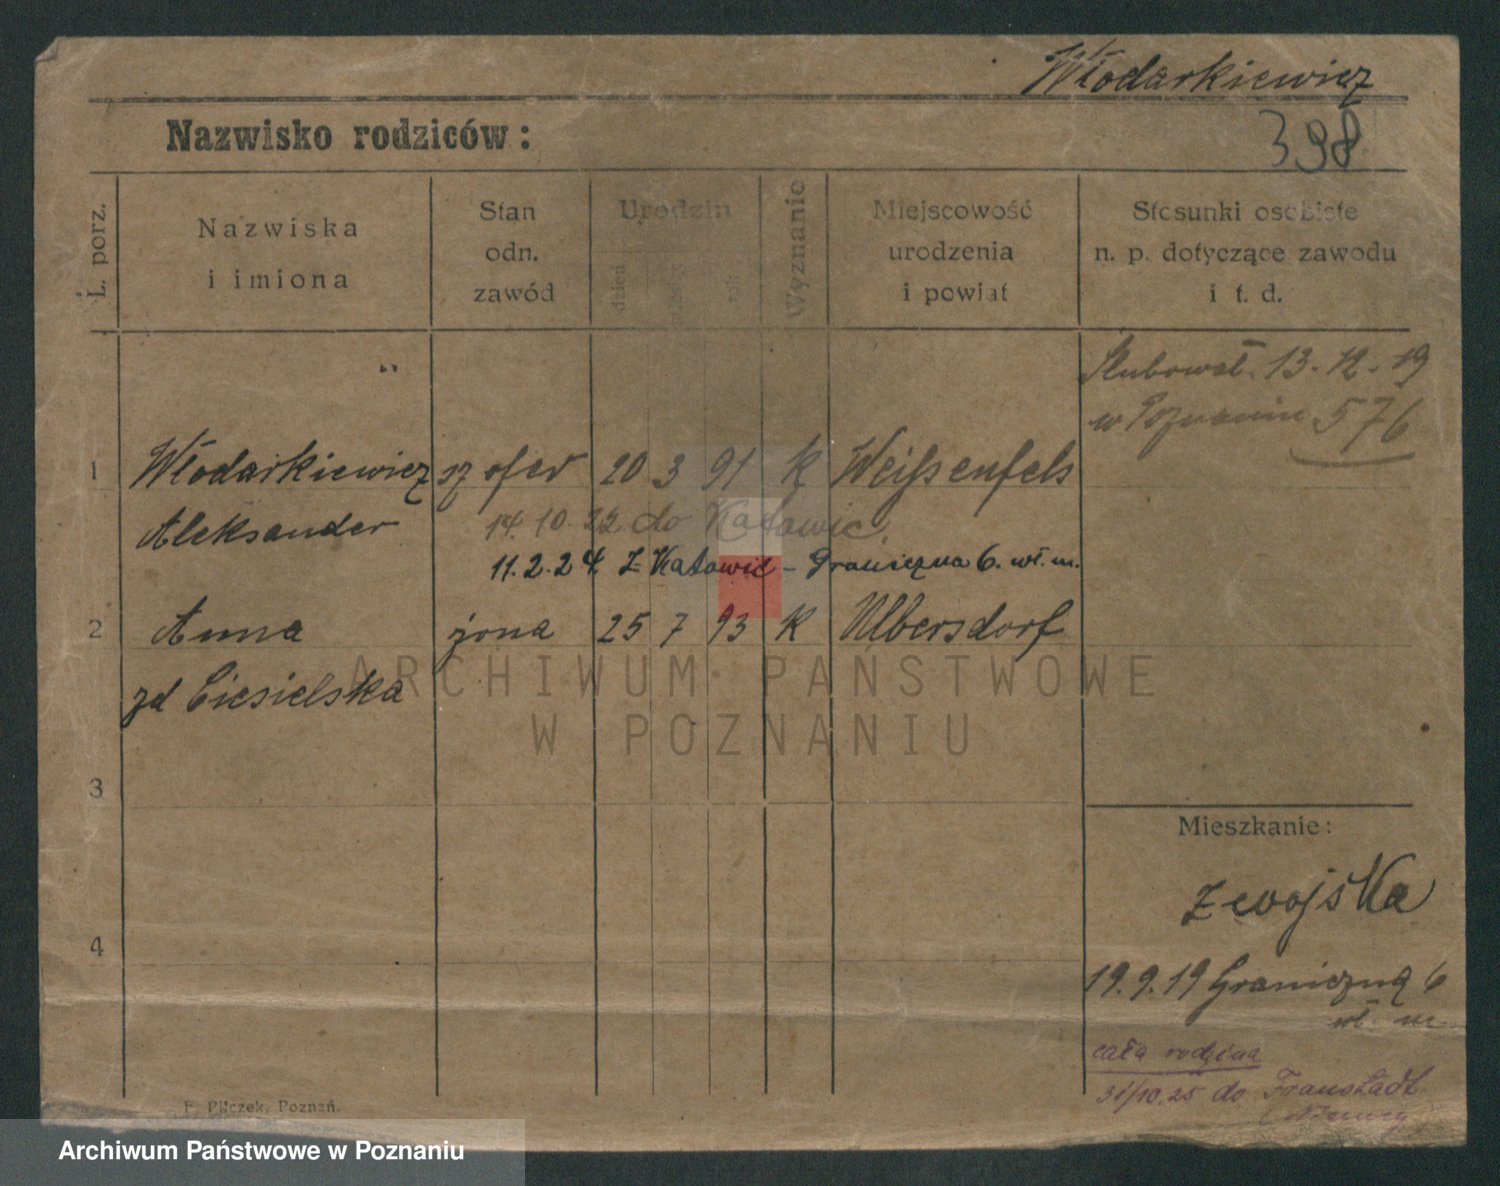 Włodarkiewicz
Nazwisko rodziców:
398
L. porz.
Nazwiska
i imiona
Stan
odn.
zawód
Urodzin
dzień
rok
Wyznanie
Miejscowość
urodzenia
i powiat
Stosunki osobiste
n. p. dotyczące zawodu
i t. d.
Ślubował 13.12.19
w Poznaniu 576
1 Włodarkiewicz szofer 20 3 91 K Weißenfels
Aleksander 14.10.22 do Katowic.
11.2.24 z Katowic - Graniczna 6. wł. m.
2 Anna żona 25 7 93 K Ulbersdorf
zd Ciesielska
ARCHIWUM PAŃSTWOWE
W POZNANIU
3
Mieszkanie:
z wojska
4
19.9.19 Graniczną 6
wł. m.
cała rodzina
31/10.25 do Fraustadt
Niemcy
F. Pilczek, Poznań.
Archiwum Państwowe w Poznaniu